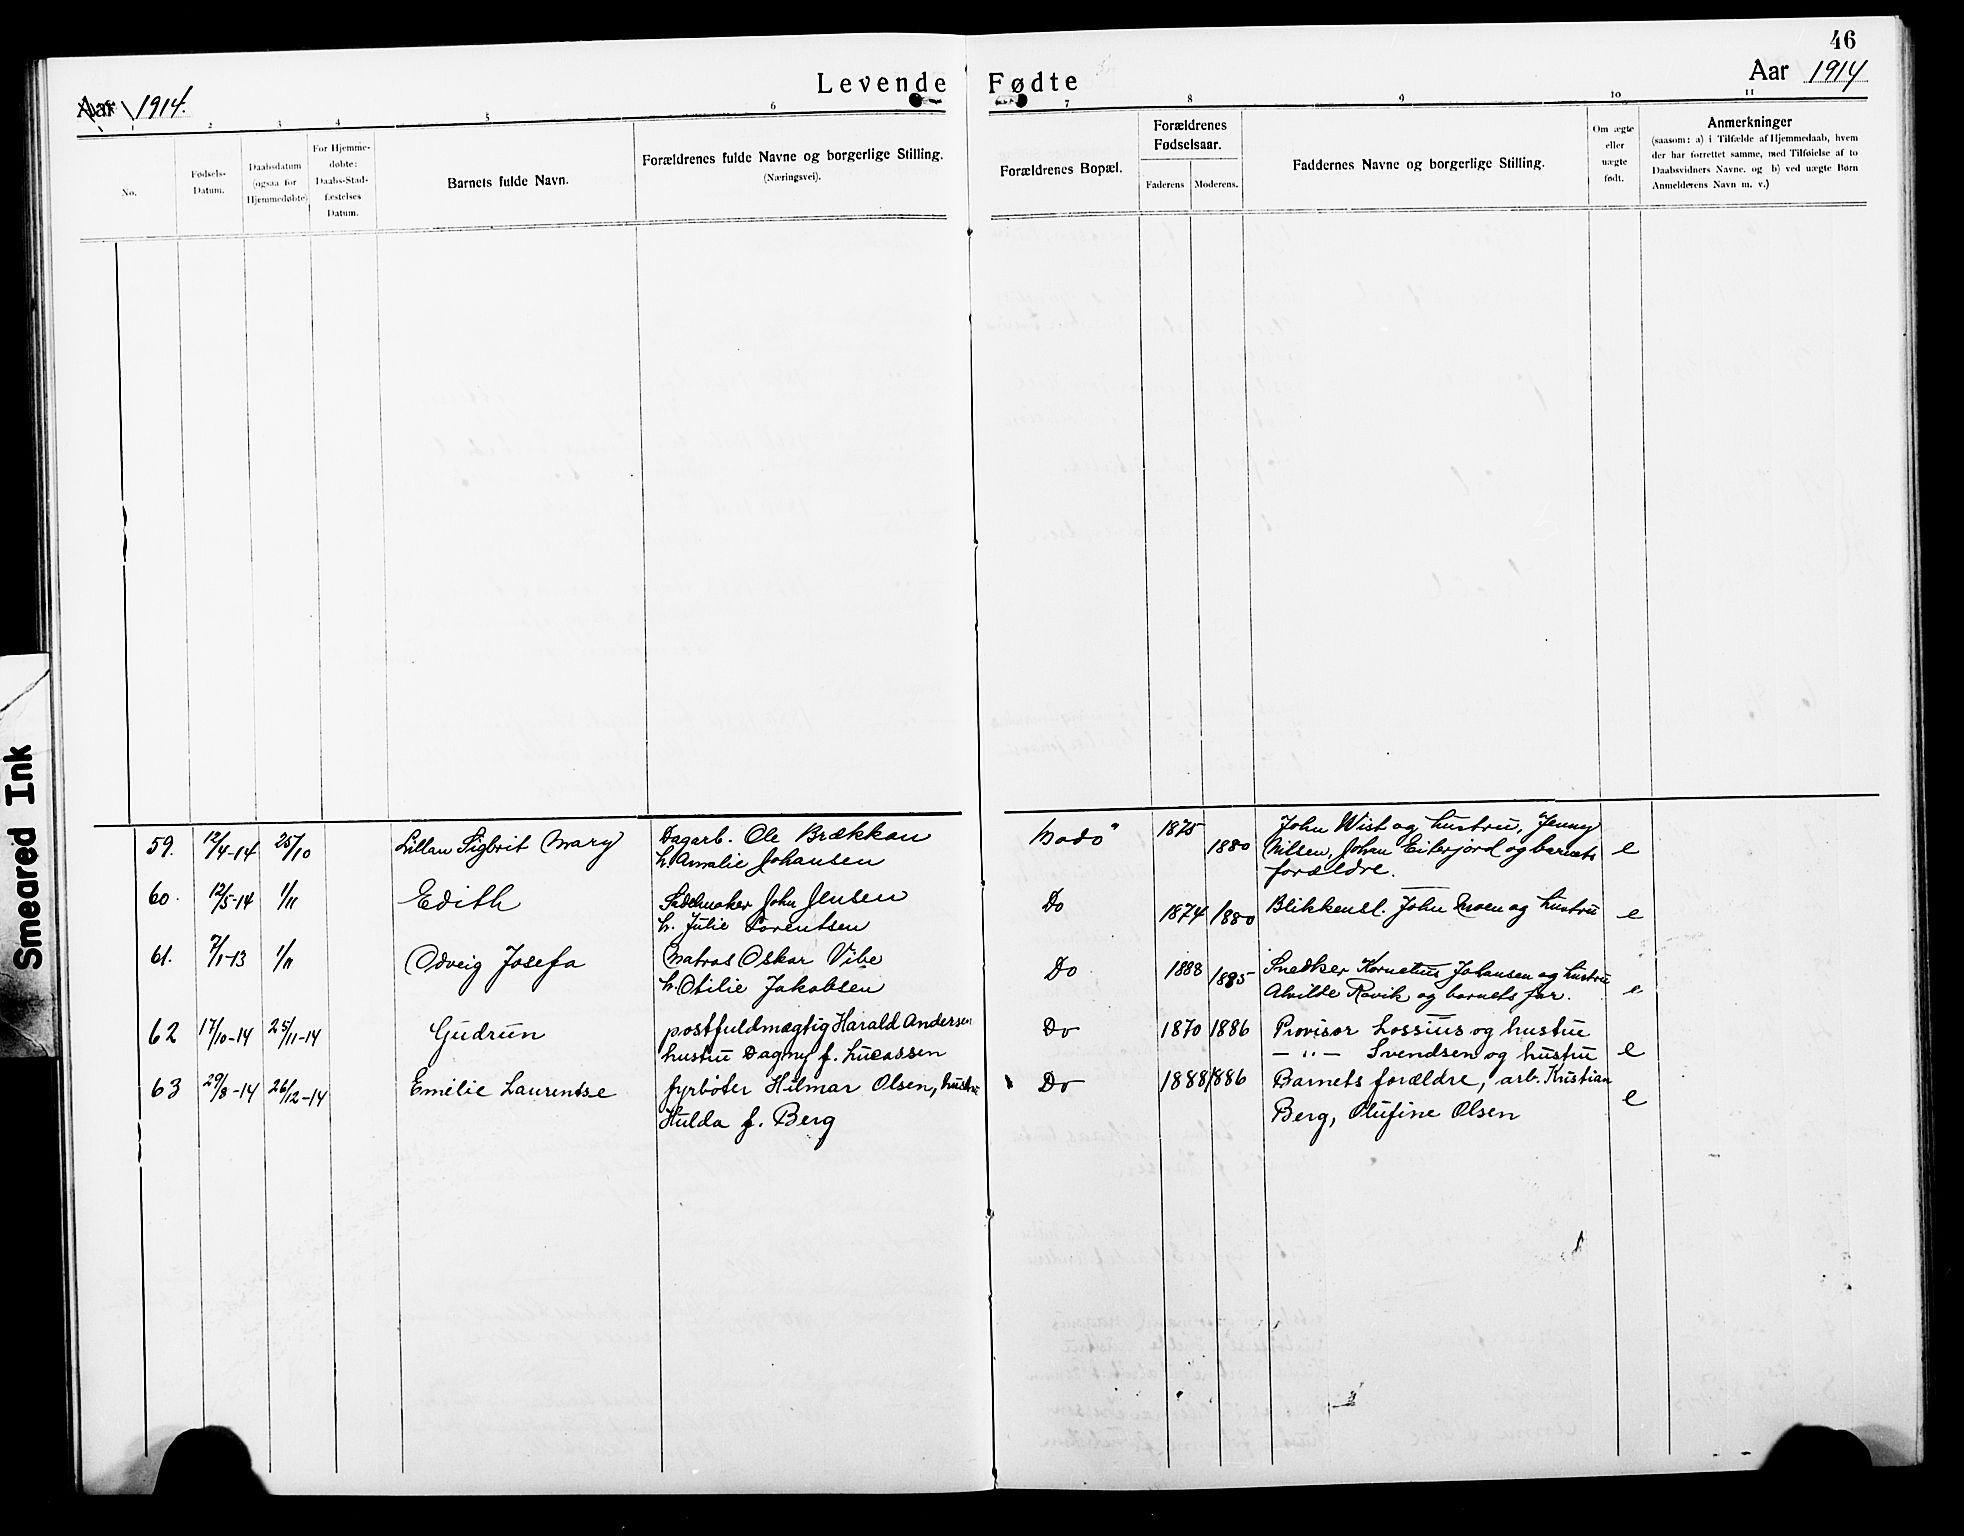 46
Levende Fødte
Aar 1914.
Aar 1914
1 2 3 4 5 6 7 8 9 10 11
No.
Fødsels-
Datum.
Daabsdatum
(ogsaa for
Hjemmedøbte)
For Hjemme-
døbte:
Daabs-Stad-
fæstelses
Datum.
Barnets fulde Navn.
Forældrenes fulde Navne og borgerlige Stilling.
(Næringsvei).
Forældrenes Bopæl.
Forældrenes
Fødselsaar.
Faderens
Moderens.
Faddernes Navne og borgerlige Stilling.
Om ægte
eller
uægte
født.
Anmerkninger
(saasom: a) i Tilfælde af Hjemmedaab, hvem
der har forrettet samme, med Tilføielse af to
Daabsvidners Navne. og b) ved uægte Børn
Anmelderens Navn m. v.)
59. 12/4-14 25/10 Lillan Sigbrit Mary Dagarb. Ole Brækkan Bodø 1875 John Wist og hustru, Jenny
h. Amalie Johansen 1880 Nilsen, Johan Eiterjord og barnets e
forældre.
60. 12/5-14 1/11 Edith Sadelmaker John Jensen Do 1874 1880 Blikkensl. John Moen og hustru e
h. Julie Lorentsen
61. 7/1-13 1/11 Odveig Josefa Matros Oskar Vibe Do 1888 1885 Snedker Kornelius Johansen og hustru
h. Otilie Jakobsen Alvilde Ravik og barnets far. e
62 17/10-14 25/11-14 Gudrun postfuldmægtig Harald Andersen Do 1870 1886 Provisor Lossius og hustru
hustru Dagny f. Lucassen — " — Svendsen og hustru e
63 29/8-14 26/12-14 Emelie Laurentse fyrbøter Hilmar Olsen, hustru Do 1888 1886 Barnets forældre, arb. Kristian
Hulda f. Berg Berg, Olufine Olsen e
Smeared Ink